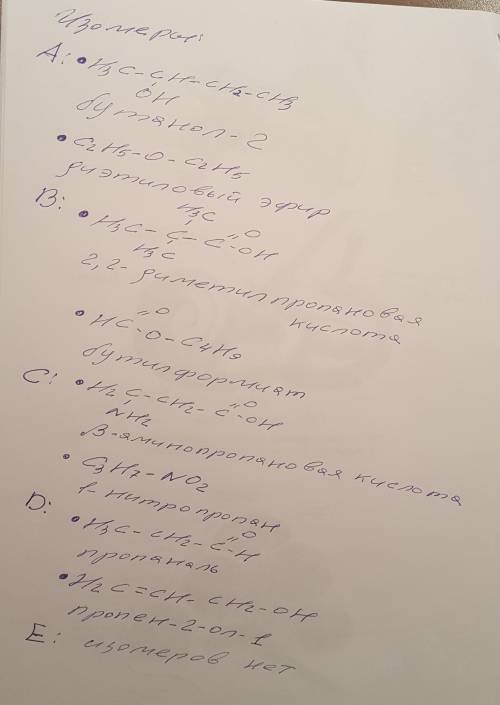 Изомеры:
A: • H3C-CH-CH2-CH3
OH
бутанол-2
• C2H5-O-C2H5
диэтиловый эфир
H3C
B: • H3C-C-C=O-OH
H3C
2,2-диметилпропановая
кислота
• HC=O-O-C4H9
бутилформиат
C: • H2C-CH2-C=O-OH
NH2
β-аминопропановая кислота
• C3H7-NO2
1-нитропропан
D: • H3C-CH2-C=O-H
пропаналь
• H2C=CH-CH2-OH
пропен-2-ол-1
E: изомеров нет